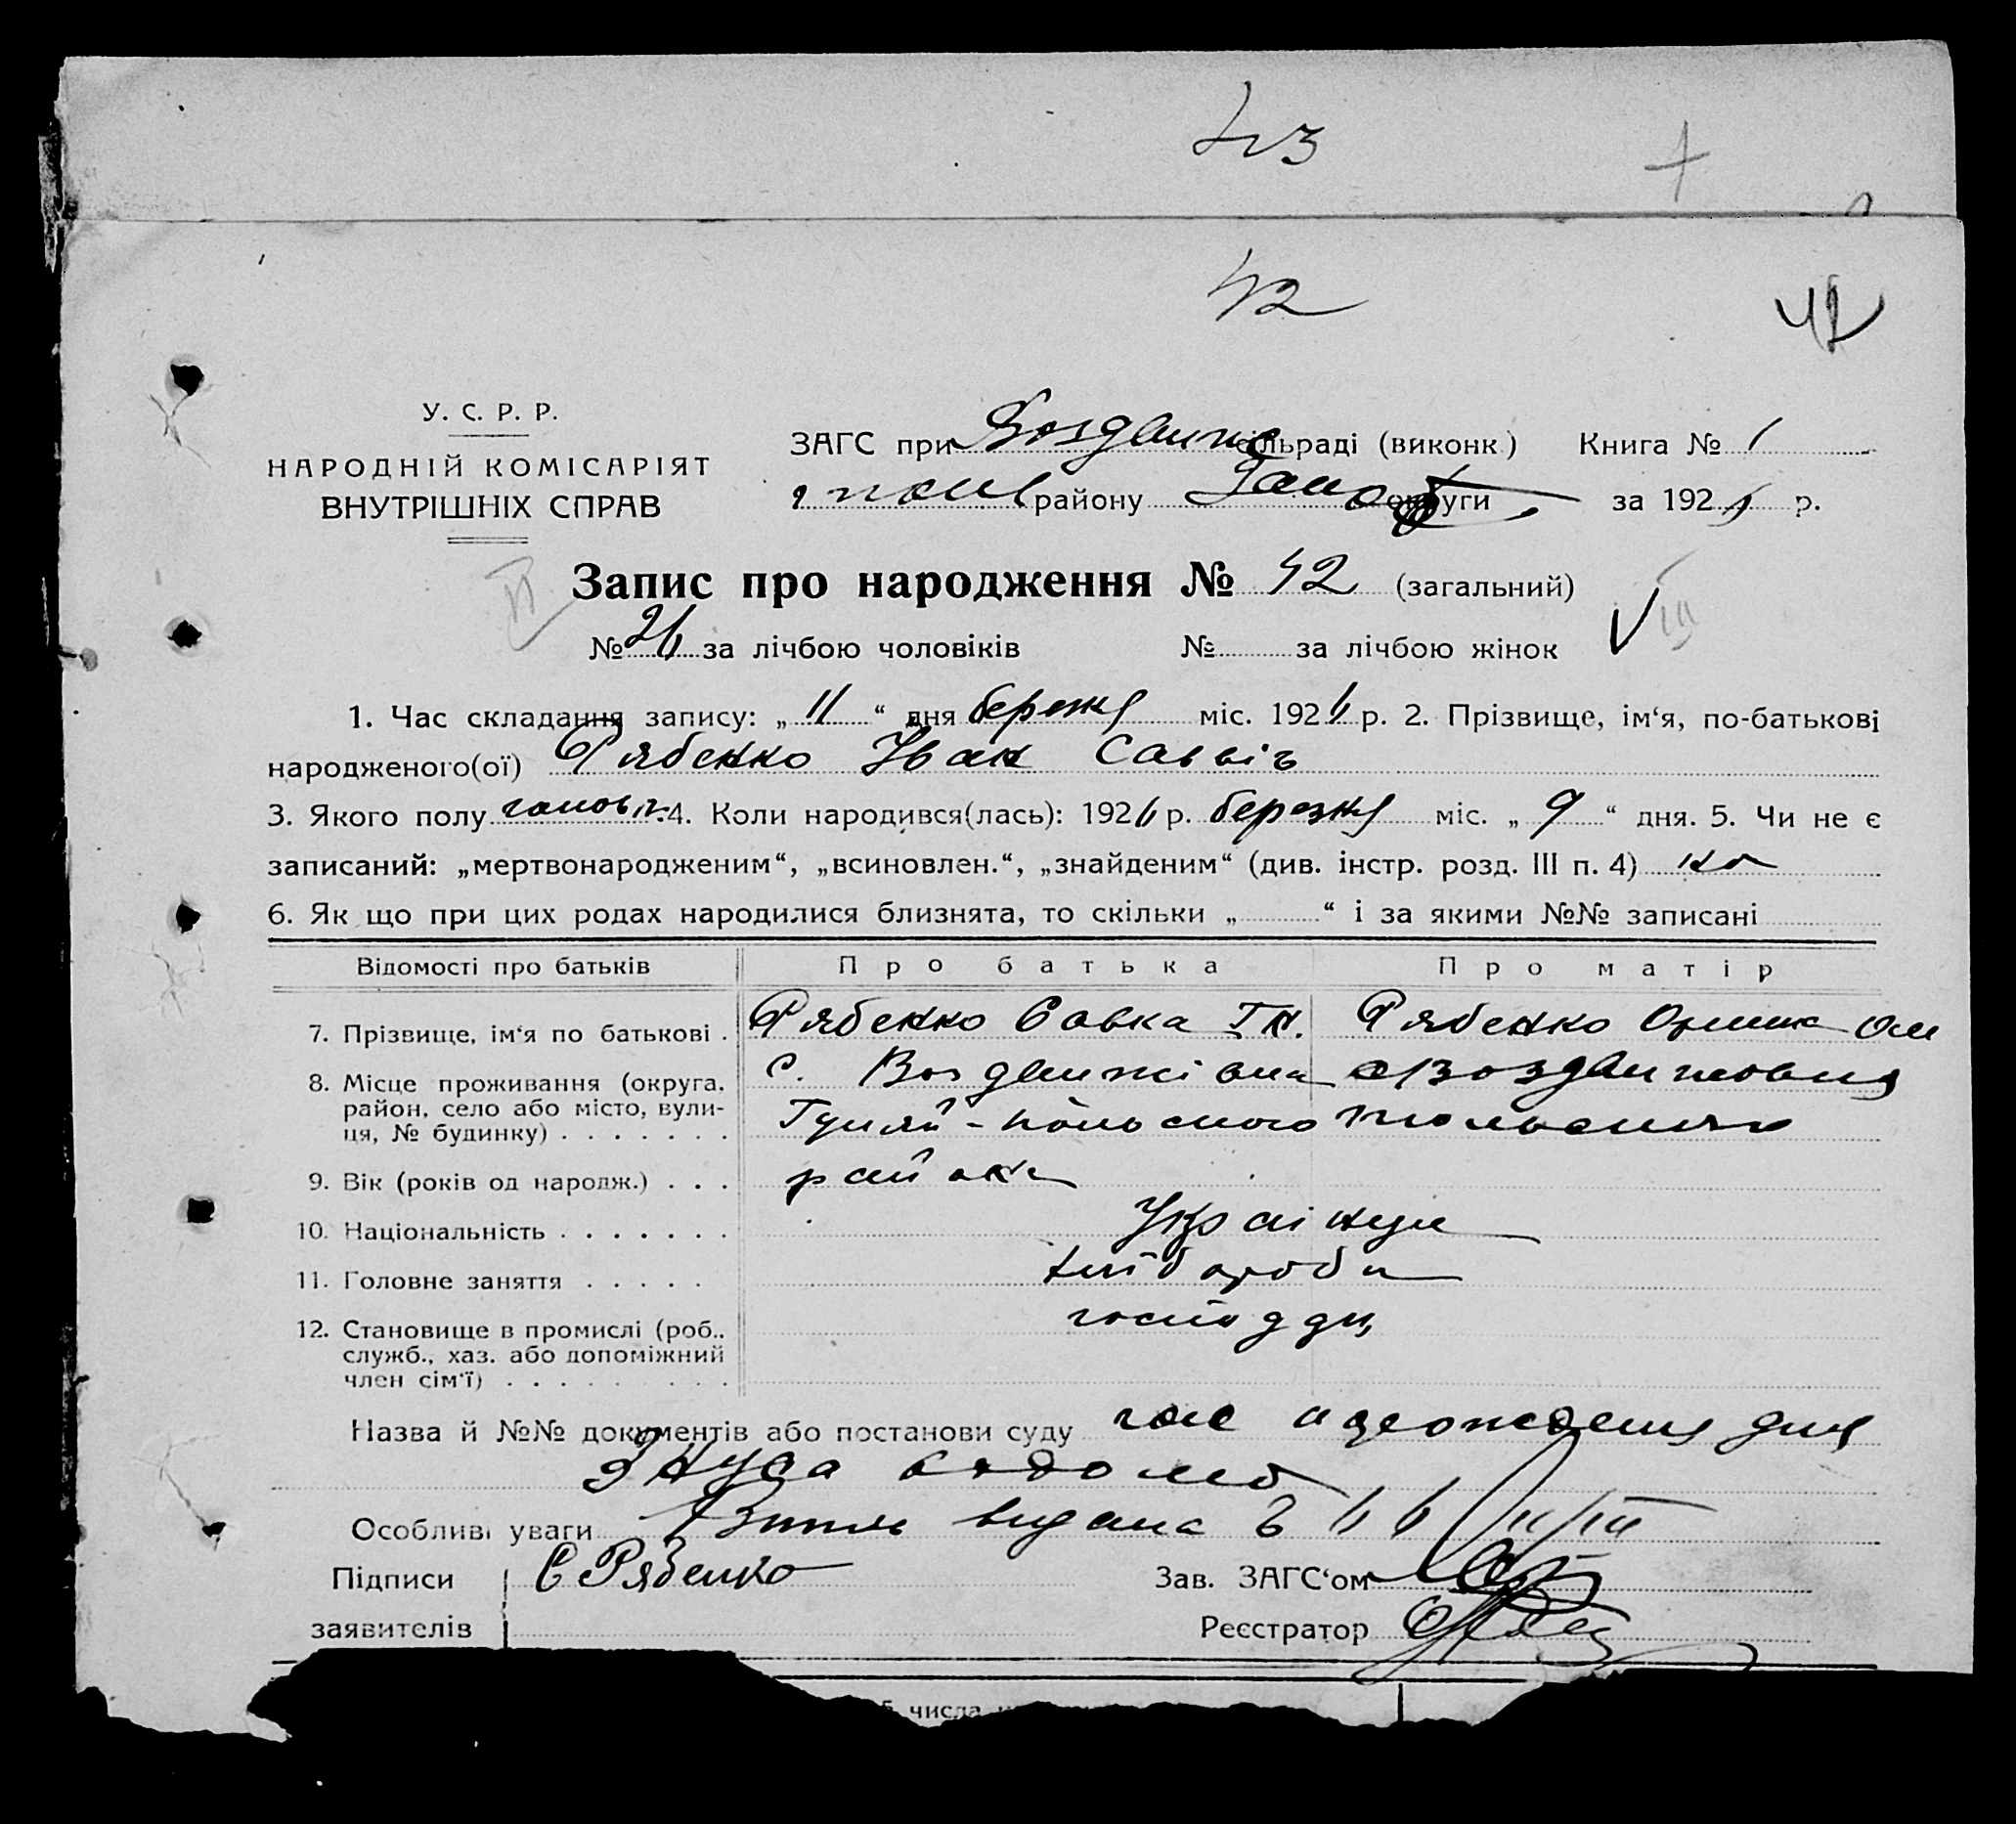 43
42
42
У. С. Р. Р.
НАРОДНІЙ КОМІСАРІЯТ
ВНУТРІШНІХ СПРАВ
ЗАГС при Воздвиж сільраді (виконк.) Книга № 1
району Запоріз округи за 1926 р.
Запис про народження № 42 (загальний)
№ 26 за лічбою чоловіків № за лічбою жінок
1. Час складання запису: „ 11 “ дня березня міс. 1926 р. 2. Прізвище, ім‘я, по-батькові
народженого(ої) Рябенко Іван Саввіч
3. Якого полу чоловіч. 4. Коли народився(лась): 1926 р. березня міс. „ 9 “ дня. 5. Чи не є
записаний: „мертвонародженим“, „всиновлен.“, „знайденим“ (див. інстр. розд. III п. 4)
6. Як що при цих родах народилися близнята, то скільки „ “ і за якими №№ записані
Відомості про батьків Про батька Про матір
7. Прізвище, ім‘я по батькові . Рябенко Савка Рябенко
8. Місце проживання (округа, с. Воздвижівка
район, село або місто, вули- Гуляй-польського
ця, № будинку) . . . . . . .
9. Вік (років од народж.) . . . района
10. Національність . . . . . . . Українці
11. Головне заняття . . . . . хлібороби
12. Становище в промислі (роб.,
служб., хаз. або допоміжний
член сім‘ї) . . . . . . . . .
Назва й №№ документів або постанови суду
Особливі уваги видана 11/III
Підписи С Рябенко Зав. ЗАГС‘ом
заявителів Реєстратор
числа